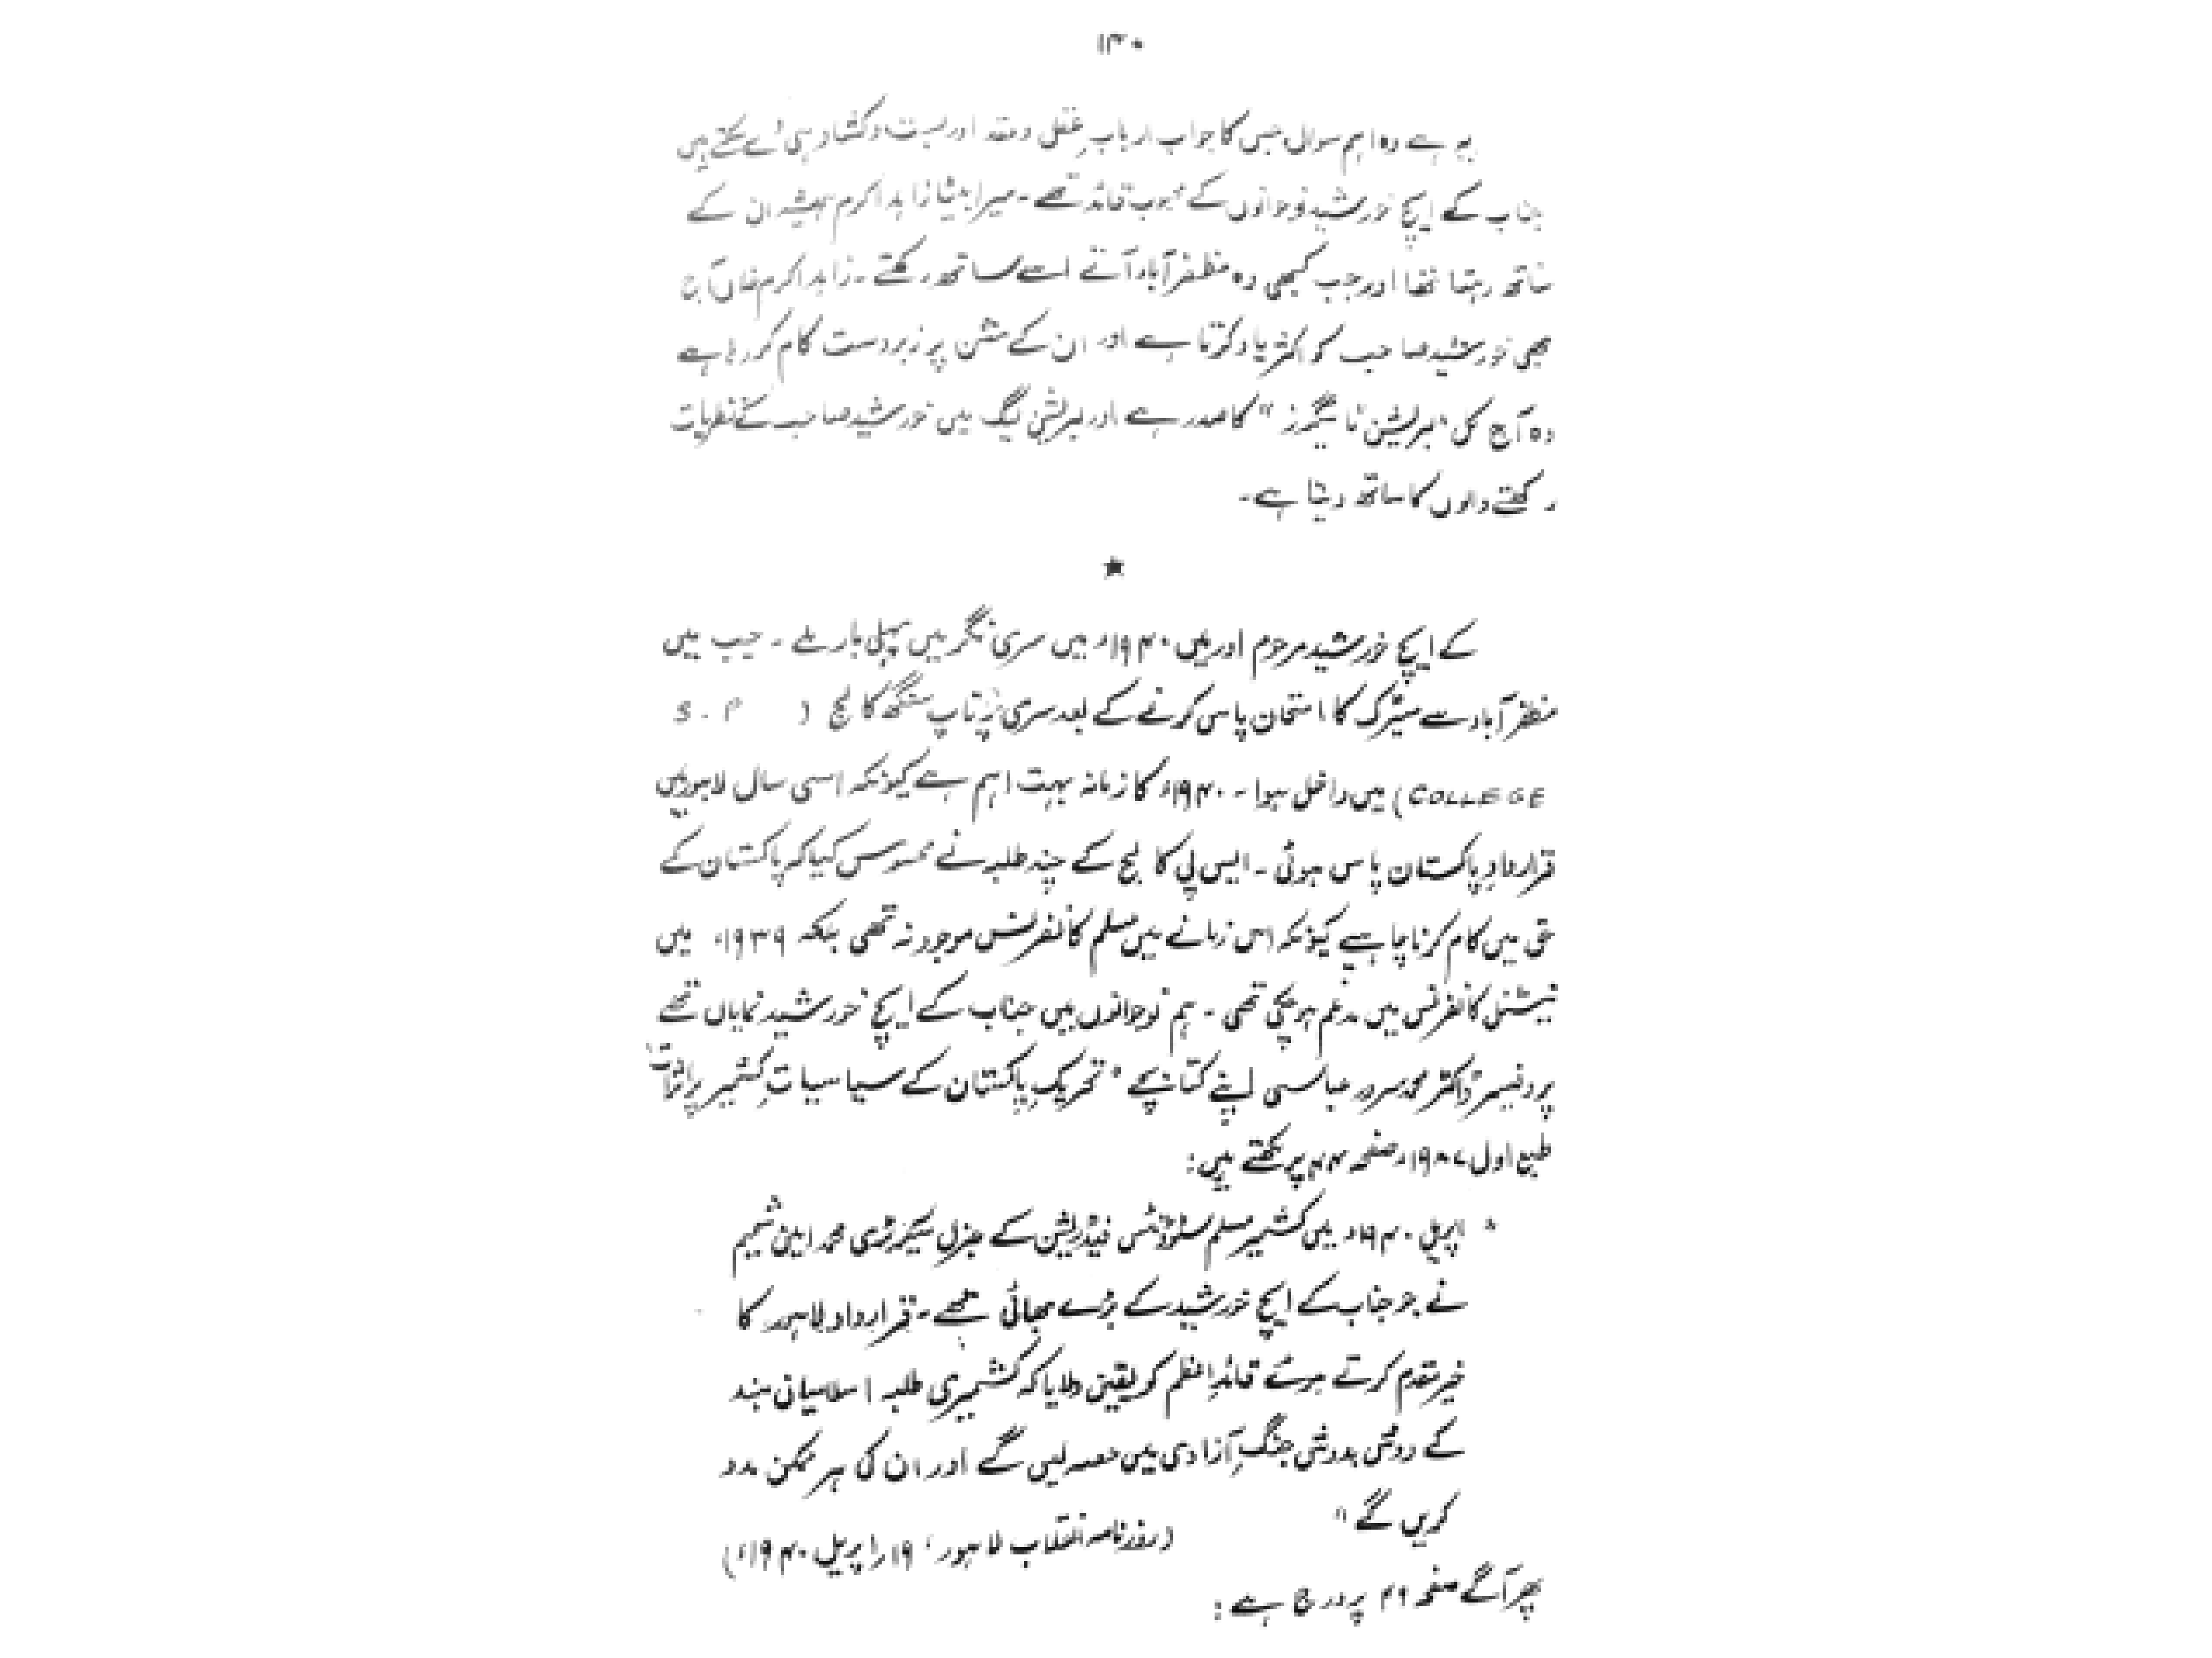 ۱۴۰
یہ ہے وہ اہم سوال جس کا جواب ارباب عقل و عقد اور بست و کشاد ہی دے سکتے ہیں
جناب کے ایچ خورشید نوجوانوں کے محبوب قائد تھے۔ میرا بیٹا زاہد اکرم ہمیشہ ان کے
ساتھ رہتا تھا اور جب کبھی وہ مظفر آباد آتے اسے ساتھ رکھتے۔ زاہد اکرم خاں آج
بھی خورشید صاحب کو اکثر یاد کرتا ہے اور ان کے مشن پر زبردست کام کر رہا ہے
وہ آج کی "لبریشن ٹائیگرز" کا صدر ہے اور لبریشن لیگ میں خورشید صاحب کے نظریات
رکھنے والوں کا ساتھ دیتا ہے۔
★
کے ایچ خورشید مرحوم اور میں ۱۹۴۰ء میں سری نگر میں پہلی بار ملے۔ جب میں
مظفر آباد سے میٹرک کا امتحان پاس کرنے کے بعد سری پرتاپ سنگھ کالج (S.P
COLLEGE) میں داخل ہوا۔ ۱۹۴۰ء کا زمانہ بہت اہم ہے کیونکہ اسی سال لاہور میں
قرارداد پاکستان پاس ہوئی۔ ایس پی کالج کے چند طلبہ نے محسوس کیا کہ پاکستان کے
حق میں کام کرنا چاہیے کیونکہ اس زمانے میں مسلم کانفرنس موجود نہ تھی بلکہ ۱۹۳۹ء میں
نیشنل کانفرنس میں مدغم ہو چکی تھی۔ ہم نوجوانوں میں جناب کے ایچ خورشید نمایاں تھے
پروفیسر ڈاکٹر محمد سرور عباسی اپنے کتابچے "تحریکِ پاکستان کے سیاسیاتِ کشمیر پر اثرات"
طبع اول ۱۹۸۷ء صفحہ ۴۴ پر لکھتے ہیں:
"اپریل ۱۹۴۰ء میں کشمیر مسلم سٹوڈنٹس فیڈریشن کے جنرل سیکرٹری محمد امین شمیم
نے جو جناب کے ایچ خورشید کے بڑے بھائی تھے۔ قرارداد لاہور کا
خیر مقدم کرتے ہوئے قائدِاعظم کو یقین دلایا کہ کشمیری طلبہ اسلامیان ہند
کے دوش بدوش جنگِ آزادی میں حصہ لیں گے اور ان کی ہر ممکن مدد
کریں گے"
(روزنامہ انقلاب لاہور، ۱۹ر اپریل ۱۹۴۰ء)
پھر آگے صفحہ ۴۹ پر درج ہے: